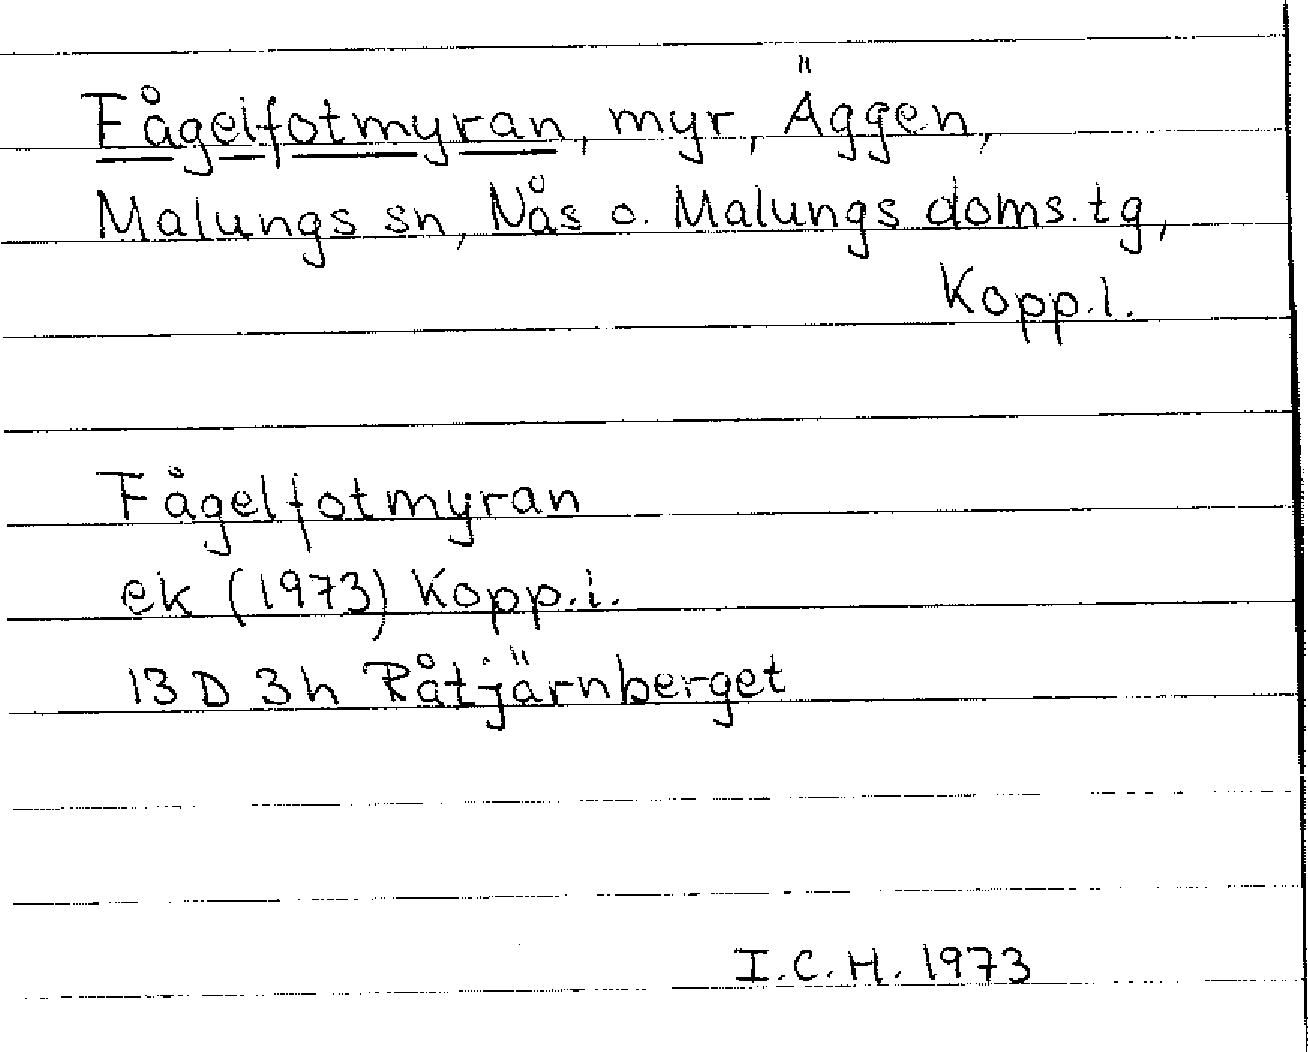 Fågelfotmyran, myr, Äggen,
Malungs sn, Nås o. Malungs doms.tg,
Kopp.l.
Fågelfotmyran
ek (1973) Kopp.l.
13 D 3h Råtjärnberget
I.C.H. 1973